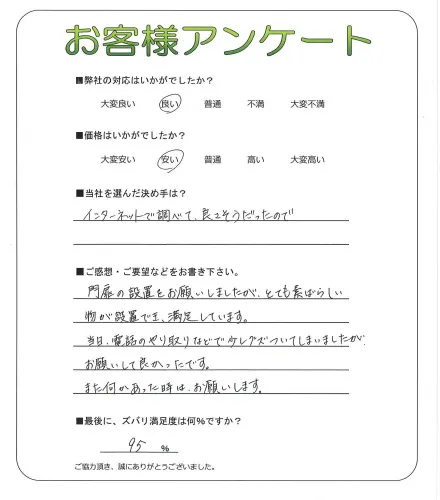 お客様アンケート
■弊社の対応はいかがでしたか？
大変良い 良い 普通 不満 大変不満
■価格はいかがでしたか？
大変安い 安い 普通 高い 大変高い
■当社を選んだ決め手は？
インターネットで調べて、良さそうだったので
■ご感想・ご要望などをお書き下さい。
門扉の設置をお願いしましたが、とても素ばらしい
物が設置でき、満足しています。
当日、電話のやり取りなどで少しグズついてしまいましたが、
お願いして良かったです。
また何かあった時は、お願いします。
■最後に、ズバリ満足度は何%ですか？
95 %
ご協力頂き、誠にありがとうございました。